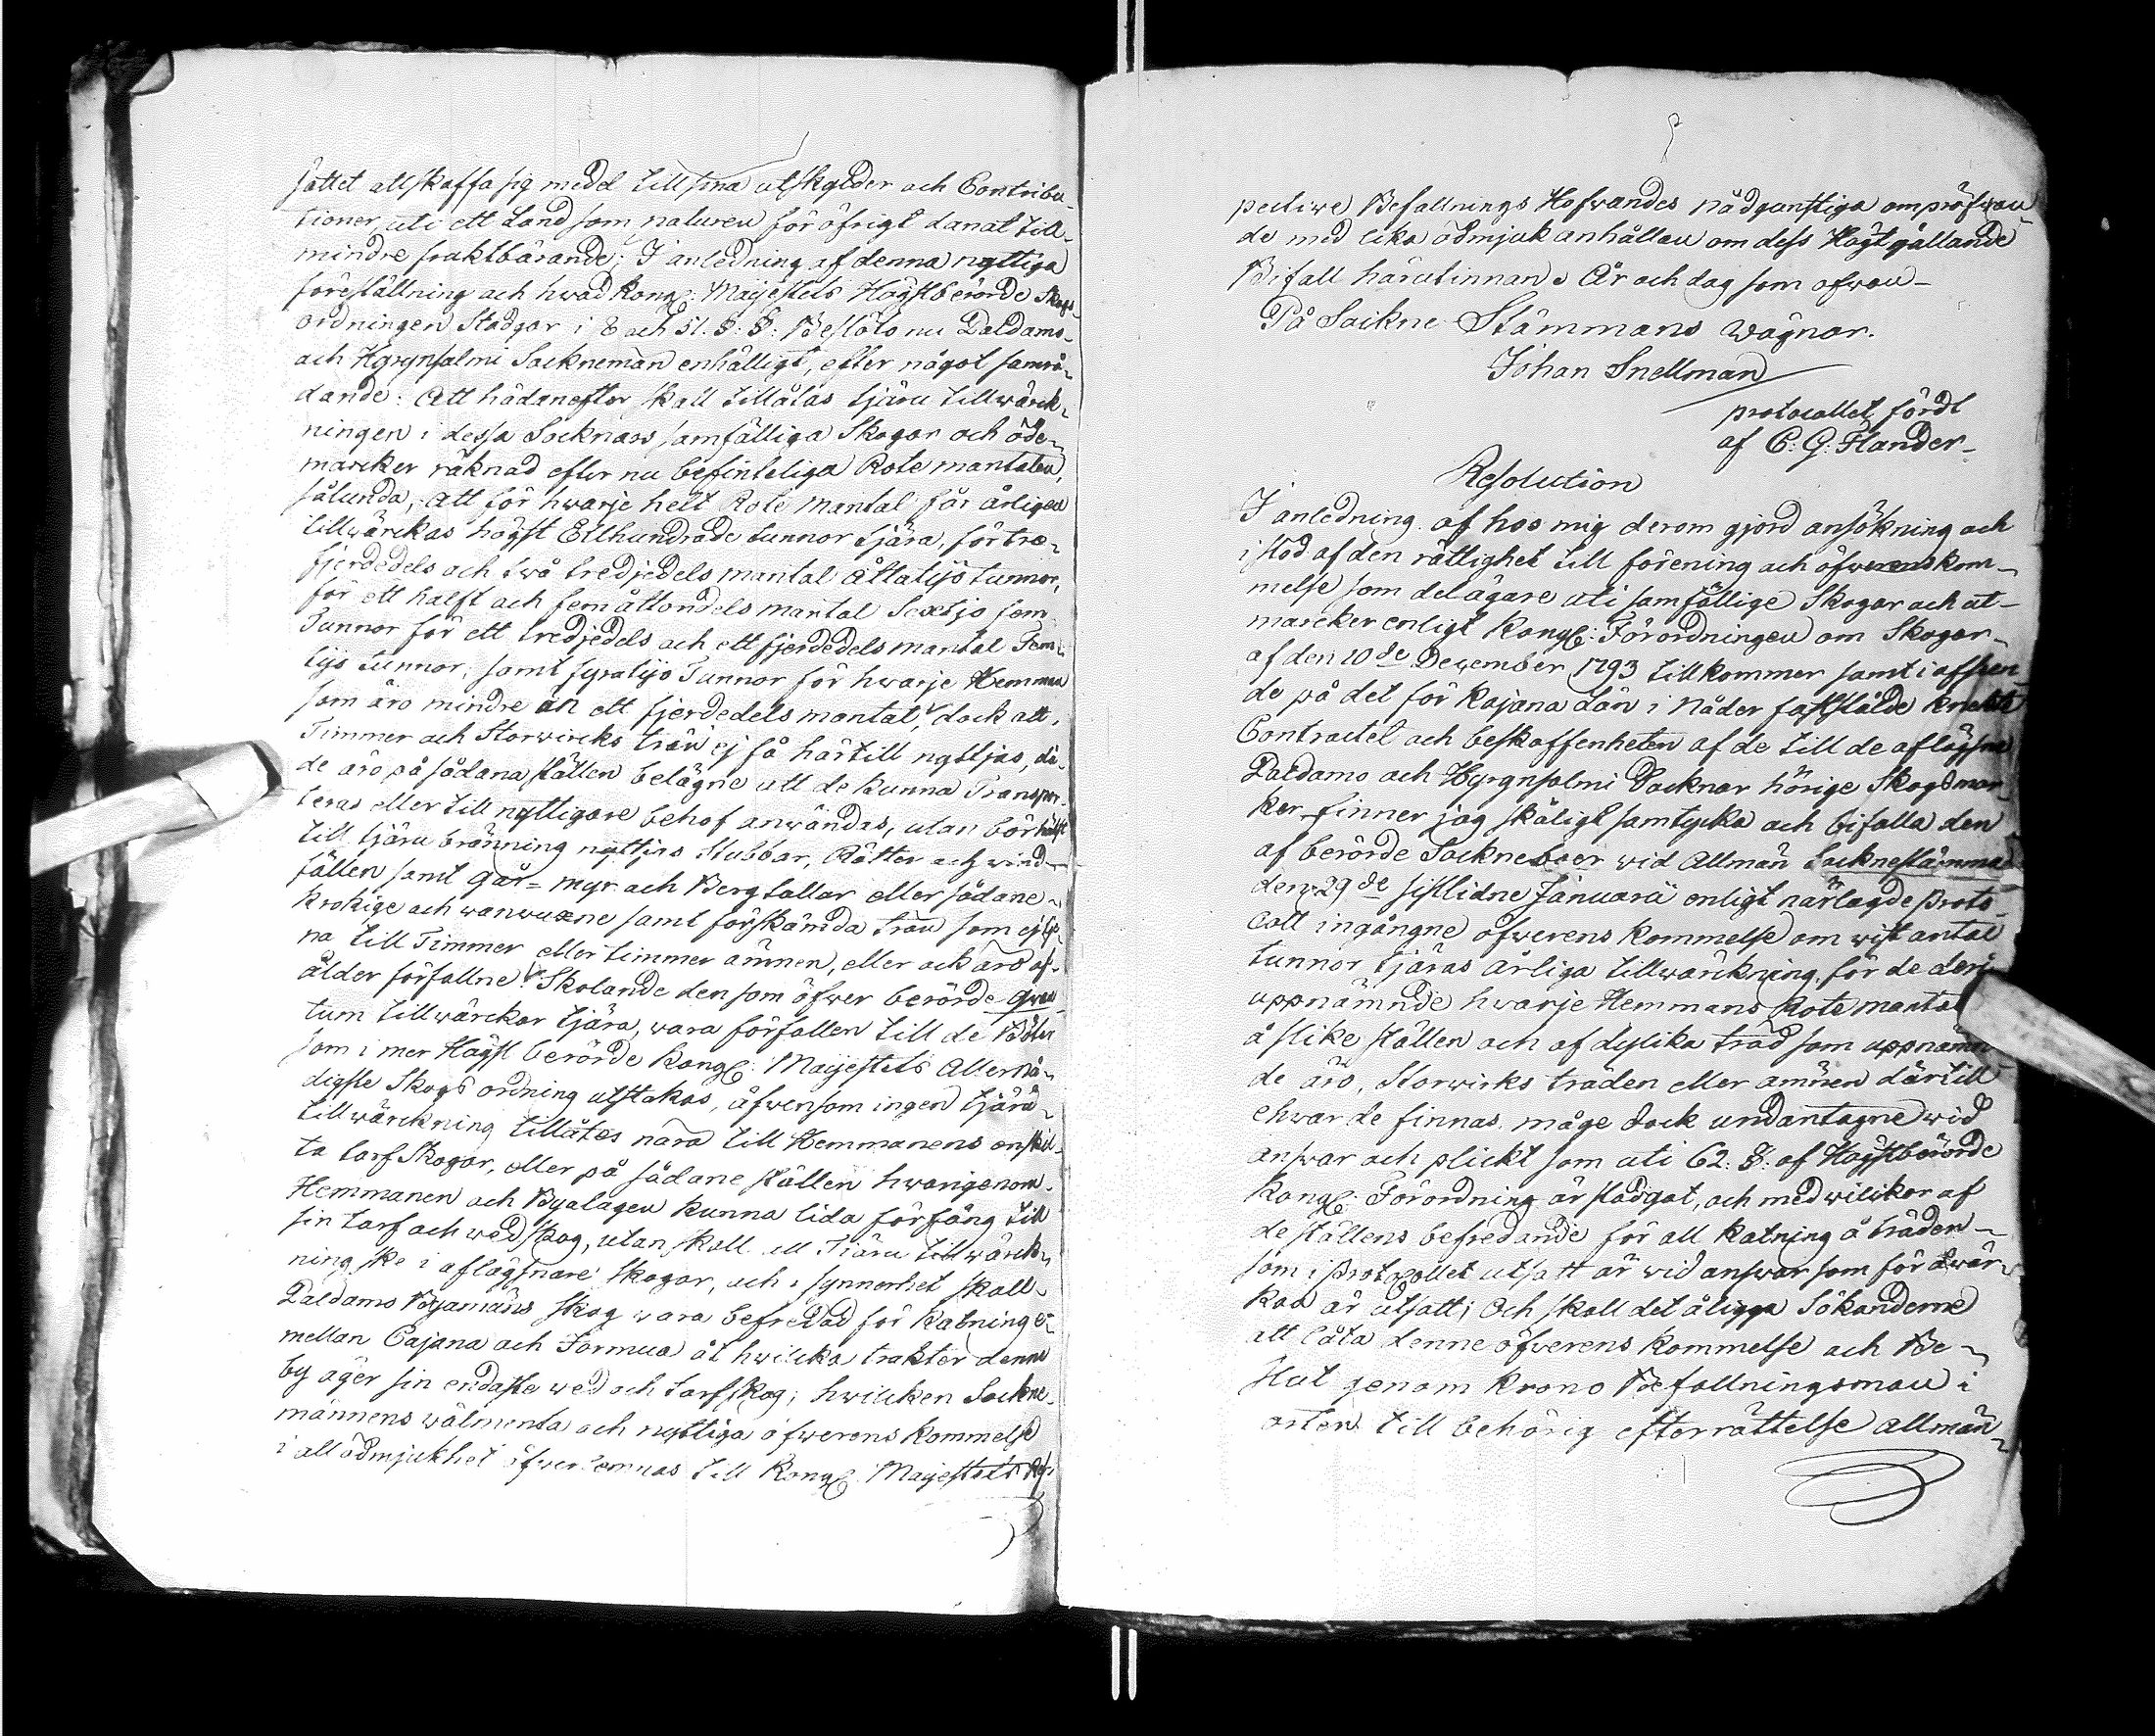 sättet att skaffa sig medel till sina utskylder och Contribu-
tioner, uti ett Land som naturen för öfrigt danat till
mindre fruktbärande; I anledning af denna nyttiga
föreställning och hwad Kongl: Maijestets Högstberörde Skogs-
ordningen Stadgar i 8 och 51. §. §: Beslöto nu Paldamo-
och Hyrynsalmi Sockneman enhälligt, efter något samrå-
dande: Att hädanefter skall tillåtas tjäru tillwärck-
ningen i dessa Socknars samfälliga Skogar och öde-
marcker räknad efter nu befinteliga Rote mantalen,
sålunda, att för hwarje helt Rote Mantal får årligen
tillwärckas högst Etthundrade tunnor tjära, för tre-
fjerdedels och twå tredjedels mantal Åttatijo tunnor,
för ett halft och fem åttondels mantal Sextjo fem
Tunnor för ett tredjedels och ett fjerdedels mantal Fem-
tijo tunnor, samt fyratijo Tunnor för hwarje Hemman
som äro mindre än ett fjerdedels mantal, dock att,
Timmer och Storwircks trän ej få härtill nyttjas, då
de äro på sådana ställen belägne att de kunna Transpor-
teras eller till nyttigare behof anwändas, utan bör hälst
till tjäru bränning nyttjas Stubbar, Rötter och wind-
fällen samt Går= myr och Berg tallar eller sådane
krokige och wanwuxne samt förskämda trän som ej tje-
na till Timmer eller timmer ämnen, eller ock äro af
ålder förfallne. Skolande den som öfwer berörde Quan-
tum tillwärckar tjära, wara förfallen till de Böter
som i mer Högst berörde Kongl: Maijestets Allernå-
digste Skogs ordning utstakas, äfwensom ingen tjäru
tillwärckning tillåtes nära till Hemmanens enskil-
ta tarf Skogar, eller på sådane ställen hwarigenom
Hemmanen och Byalagen kunna lida förfång till
sin tarf och wed skog, utan skall all Tjäru tillwärck-
ning ske i aflägsnare Skogar, och i synnerhet skall
Paldamo Byamäns skog wara befredad för katning e-
mellan Cajana och Jormua åt hwilcka trakter denne
by äger sin endaste wed och tarf skog; hwilcken Sockne-
männens wälmenta och nyttiga öfwerens kommelse
i all ödmjukhet öfwerlemnas till Kongl: Maijestets Res-
pective Befallnings Hafwandes nådgunstiga ompröfwan-
de med lika ödmjuk anhållan om dess Högtgällande
Bifall härutinnan. År och dag som ofwan
På Sockne Stämmans wägnar.
Johan Snellman
protocollet fördt
af C: G: Flander
Resolution
I anledning af hos mig derom gjord ansökning och
i stöd af den rättighet till förening och öfwerenskom-
melse som delägare uti samfällige Skogar och ut-
marcker enligt Kongl: Förordningen om Skogar
af den 10de December 1793 tillkommer samt i afseen-
de på det för Kajana Län i Nåder fastställde Knekte
Contractet och beskaffenheten af de till de aflägsna
Paldamo och Hyrynsalmi Socknar hörige Skogsmar-
ker finner jag skäligt samtycka och bifalla den
af berörde Sockneboer wid Allmän Socknestämma
den 29de sistlidne Januarii enligt närlagde Proto-
coll ingångne öfwerens kommelse om wist antal
tunnor tjäras årliga tillwärckning, för de deri
uppnämnde hwarje Hemmans Rote mantal
å slike ställen och af dylika träd som uppnämn-
de äro, Storwirks träden eller ämnen därtill
ehwar de finnas, måge dock undantagne wid
answar och plickt som uti 62. §. af Högstberörde
Kongl: Förordning är stadgat, och med wilckor af
de ställens befredande för all katning å träden
som i Protocollet utsatt är wid answar som för åwär-
kan är utsatt; Och skall det åligga Sökanderne
att låta denne öfwerens kommelse och Be-
slut genom Krono Befallningsman i
orten till behörig efterrättelse allmän-